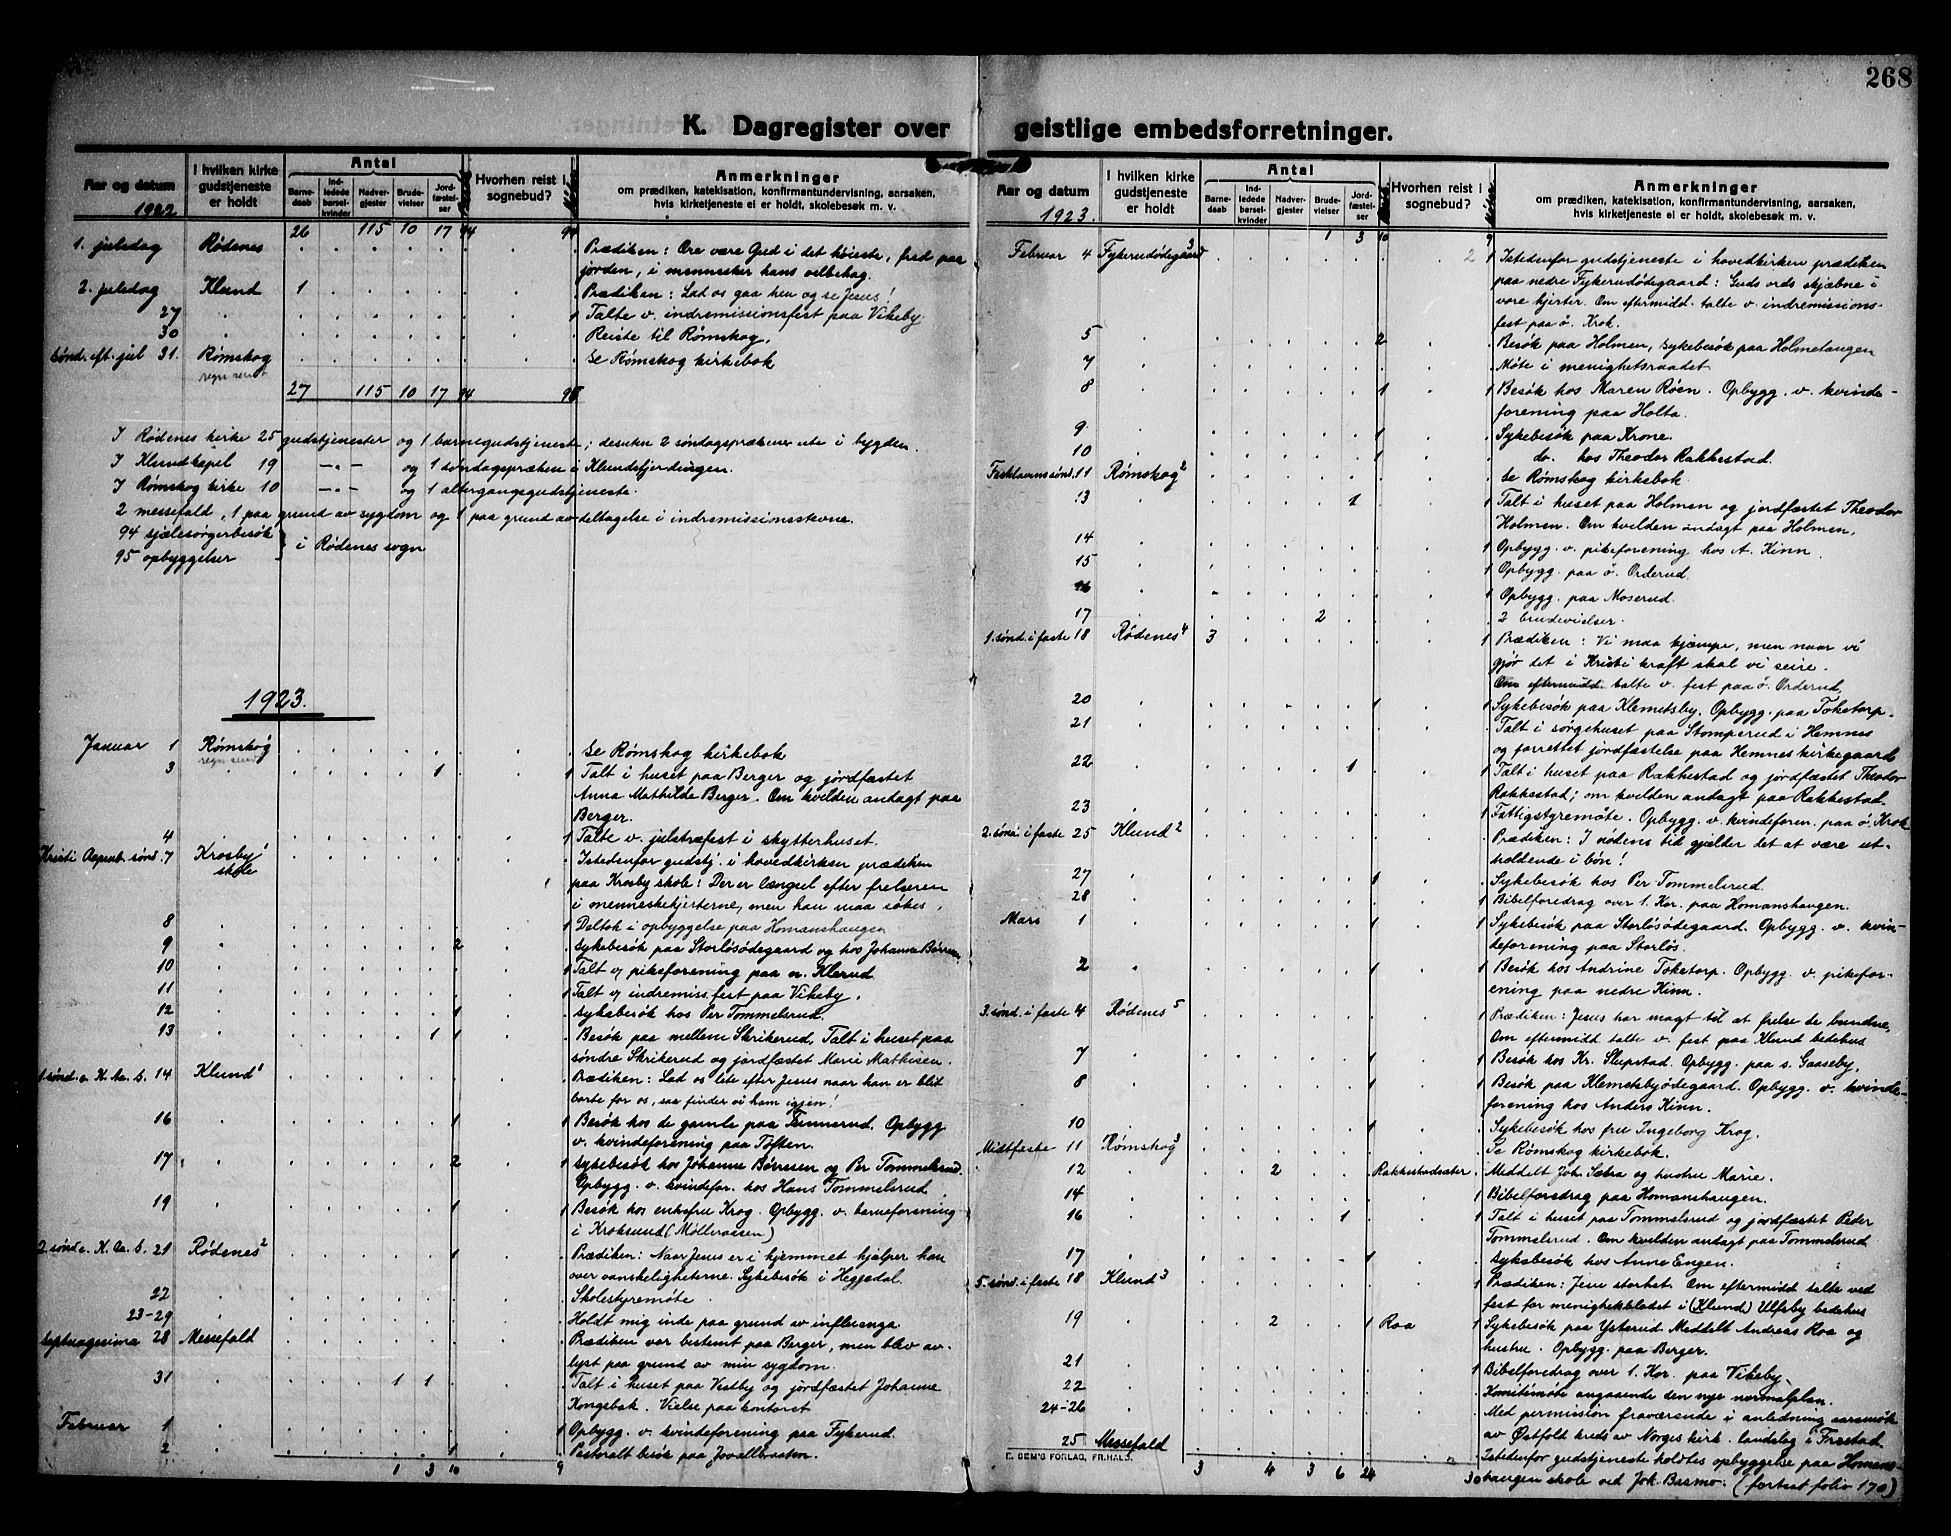 268
K. Dagregister over geistlige embedsforretninger.
Aar og datum
I hvilken kirke gudstjeneste er holdt
Antal
Barnedaab
Indledede barselkvinder
Nadvergjester
Brudevielser
Jordfæstelser
Hvorhen reist i sognebud?
Anmerkninger
om prædiken, katekisation, konfirmantundervisning, aarsaken,
hvis kirketjeneste ei er holdt, skolebesøk m. v.
1922
26 115 10 17 94
1. juledag Rødenes Prædiken: Ære være Gud i det høieste, fred paa
jorden, i mennesker hans velbehag.
2. juledag Klund 1 Prædiken: Lad os gaa hen og se Jesus!
27 1 Talte v. indremissionsfest paa Vikeby.
30 Reiste til Rømskog.
Sønd. eft. jul 31. Rømskog Se Rømskog kirkebok
27 115 10 17 94
I Rødenes kirke 25 gudstjenester og 1 barnegudstjeneste, desuten 2 søndagsprækener ute i bygden.
I Klund kapel 19 —„— og 1 søndagspræken i Klundsfjerdingen.
I Rømskog kirke 10 —„— og 1 altergangsgudstjeneste.
2 messefald, 1 paa grund av sygdom og 1 paa grund av deltagelse i indremissionsstevne.
94 sjælesørgerbesøk
95 opbyggelser } i Rødenes sogn
1923.
Januar 1 Rømskog Se Rømskog kirkebok
3 1 1 Talt i huset paa Berger og jordfæstet
Anna Mathilde Berger. Om kvelden andagt paa
Berger.
4 1 Talte v. juletræfest i skytterhuset.
Kristi Aapenb. sønd. 7 Krosby skole 1 Istedenfor gudstj. i hovedkirken prædiken
paa Krosby skole: Der er længsel efter frelseren
i menneskehjerterne, men han maa søkes.
8 1 Deltok i opbyggelse paa Homanshaugen
9 2 Sykebesøk paa Storløsødegaard og hos Johanne Børresen
10 1 Talt v. pikeforening paa n. Klerud
11 1 Talt v. indremiss.fest paa Vikeby.
12 1 Sykebesøk hos Per Tommelsrud.
13 1 1 Besøk paa mellem Skrikerud. Talt i huset paa
søndre Skrikerud og jordfæstet Marie Mathisen.
1. sønd. e. K. Aa. b. 14 Klund 1 Prædiken: Lad os lete efter Jesus naar han er blit
borte for os, saa finder vi ham igjen!
16 1 1 Besøk hos de gamle paa Tunnerud. Opbygg
v. kvindeforening paa Toften.
17 2 1 Sykebesøk hos Johanne Børresen og Per Tommelsrud.
Opbygg. v. kvindefor. hos Hans Tommelsrud.
19 1 1 Besøk hos enkefru Krog. Opbygg. v. barneforening
i Kroksund (Mølleraasen)
2. sønd e. K. Aa. b. 21 Rødenes 2 1 Prædiken: Naar Jesus er i hjemmet hjælper han
over vanskeligheterne. Sykebesøk i Heggedal.
22 Skolestyremøte.
23-29 Holdt mig inde paa grund av influensa
Septuagesima 28 Messefald Prædiken var bestemt paa Berger, men blev av-
lyst paa grund av min sygdom.
31 1 1 Talt i huset paa Vestby og jordfæstet Johanne
Kongsbak. Vielse paa kontoret
Februar 1 1 Opbygg. v. kvindeforening paa Fykerud.
2 1 Pastoralt besøk paa Jovallbraaten.
1 3 10 9
Aar og datum
I hvilken kirke gudstjeneste er holdt
Antal
Barnedaab
Indledede barselkvinder
Nadvergjester
Brudevielser
Jordfæstelser
Hvorhen reist i sognebud?
Anmerkninger
om prædiken, katekisation, konfirmantundervisning, aarsaken,
hvis kirketjeneste ei er holdt, skolebesøk m. v.
1923.
1 3 10 9
Februar 4 Fykerudødegaard 3 2 1 Istedenfor gudstjeneste i hovedkirken prædiken
paa nedre Fykerudødegaard: Guds ords skjæbne i
vore hjerter. Om eftermidd. talte v. indremissions-
fest paa ø. Krok.
5 2 Besøk paa Holmen, sykebesøk paa Holmehaugen
7 Møte i menighetsraadet
8 1 1 Besøk hos Maren Røen. Opbygg. v. kvinde-
forening paa Holta.
9 1 Sykebesøk paa Krone.
10 1 do. hos Theodor Rakkestad.
Fastelavnssønd. 11 Rømskog 2 Se Rømskog kirkebok.
13 1 1 Talt i huset paa Holmen og jordfæstet Theodor
Holmen. Om kvelden andagt paa Holmen.
14 1 Opbygg. v. pikeforening hos A. Kinn.
15 1 Opbygg. paa ø. Orderud.
16 1 Opbygg. paa Moserud.
17 2 2 brudevielser.
1. sønd. i faste 18 Rødenes 4 3 1 Prædiken: Vi maa kjæmpe, men naar vi
gjør det i Kristi kraft skal vi seire.
Om eftermidd. talte v. fest paa ø. Orderud.
20 1 1 Sykebesøk paa Klemetsby. Opbygg. paa Toketorp.
21 Talt i sørgehuset paa Stomperud i Hemnes
og forrettet jordfæstelse paa Hemnes kirkegaard
22 1 1 Talt i huset paa Rakkestad og jordfæstet Theodor
Rakkestad; om kvelden andagt paa Rakkestad.
23 1 Fattigstyremøte. Opbygg. v. kvindeforen. paa ø. Krok
2. sønd. i faste 25 Klund 2 Prædiken: I nødens tid gjælder det at være ut-
holdende i bøn!
27 1 Sykebesøk hos Per Tommelsrud.
28 1 Bibelforedrag over 1. Kor. paa Homanshaugen.
Mars 1 1 1 Sykebesøk paa Storløsødegaard. Opbygg. v. kvin-
deforening paa Storløs.
2 1 1 Besøk hos Andrine Toketorp. Opbygg. v. pikefor-
ening paa nedre Kinn.
3. sønd. i faste 4 Rødenes 5 1 Prædiken: Jesus har magt til at frelse de bundne.
Om eftermidd talte v. fest paa Klund bedehus
7 1 1 Besøk hos Kr. Slupstad. Opbygg. paa s. Gaaseby.
8 1 1 Besøk paa Klemetsbyødegaard. Opbygg. v. kvinde-
forening hos Anders Kinn.
10 1 Sykebesøk hos fru Ingeborg Krog.
Midtfaste 11 Rømskog 3 Se Rømskog kirkebok.
12 2 Rakkestadsæter Meddelt Joh. Sætra og hustru Marie.
14 1 Bibelforedrag paa Homanshaugen.
16 1 1 Talt i huset paa Tommelsrud og jordfæstet Peder
Tommelsrud. Om kvelden andagt paa Tommelsrud
17 1 Sykebesøk hos Anne Engen.
5. sønd. i faste 18 Klund 3 1 Prædiken: Jesu storhet. Om eftermidd talte ved
fest for menighetsbladet i (Klund) Ulfsby bedehus
19 2 1 Roa 1 Sykebesøk paa Ysterud. Meddelt Andreas Roa og
hustru. Opbygg. paa Berger.
21 1 Bibelforedrag over 1. Kor. paa Vikeby.
22 Komitémøte angaaende den nye normalplan.
24-26 Med permission fraværende i anledning aarsmøte
av Østfold kreds av Norges kirk. landslag i Fr.stad.
25 Messefald Istedenfor gudstjeneste holdtes opbyggelse paa Homans-
haugen skole ved Joh. Basmo. (fortsat folio 170)
3 4 3 6 24 30
E. SEM'S FORLAG, FR.HALD.